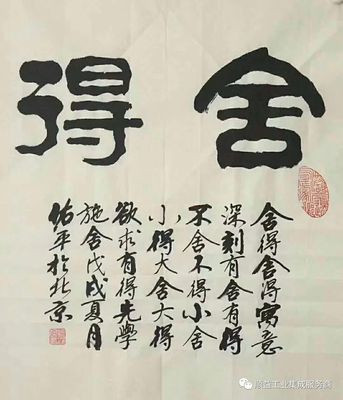 舍得
舍得舍得寓意
深刻有舍有得
不舍不得小舍
小得大舍大得
欲求有得先學
施舍戊戌夏月
佑平於北京
益工业集成服务商